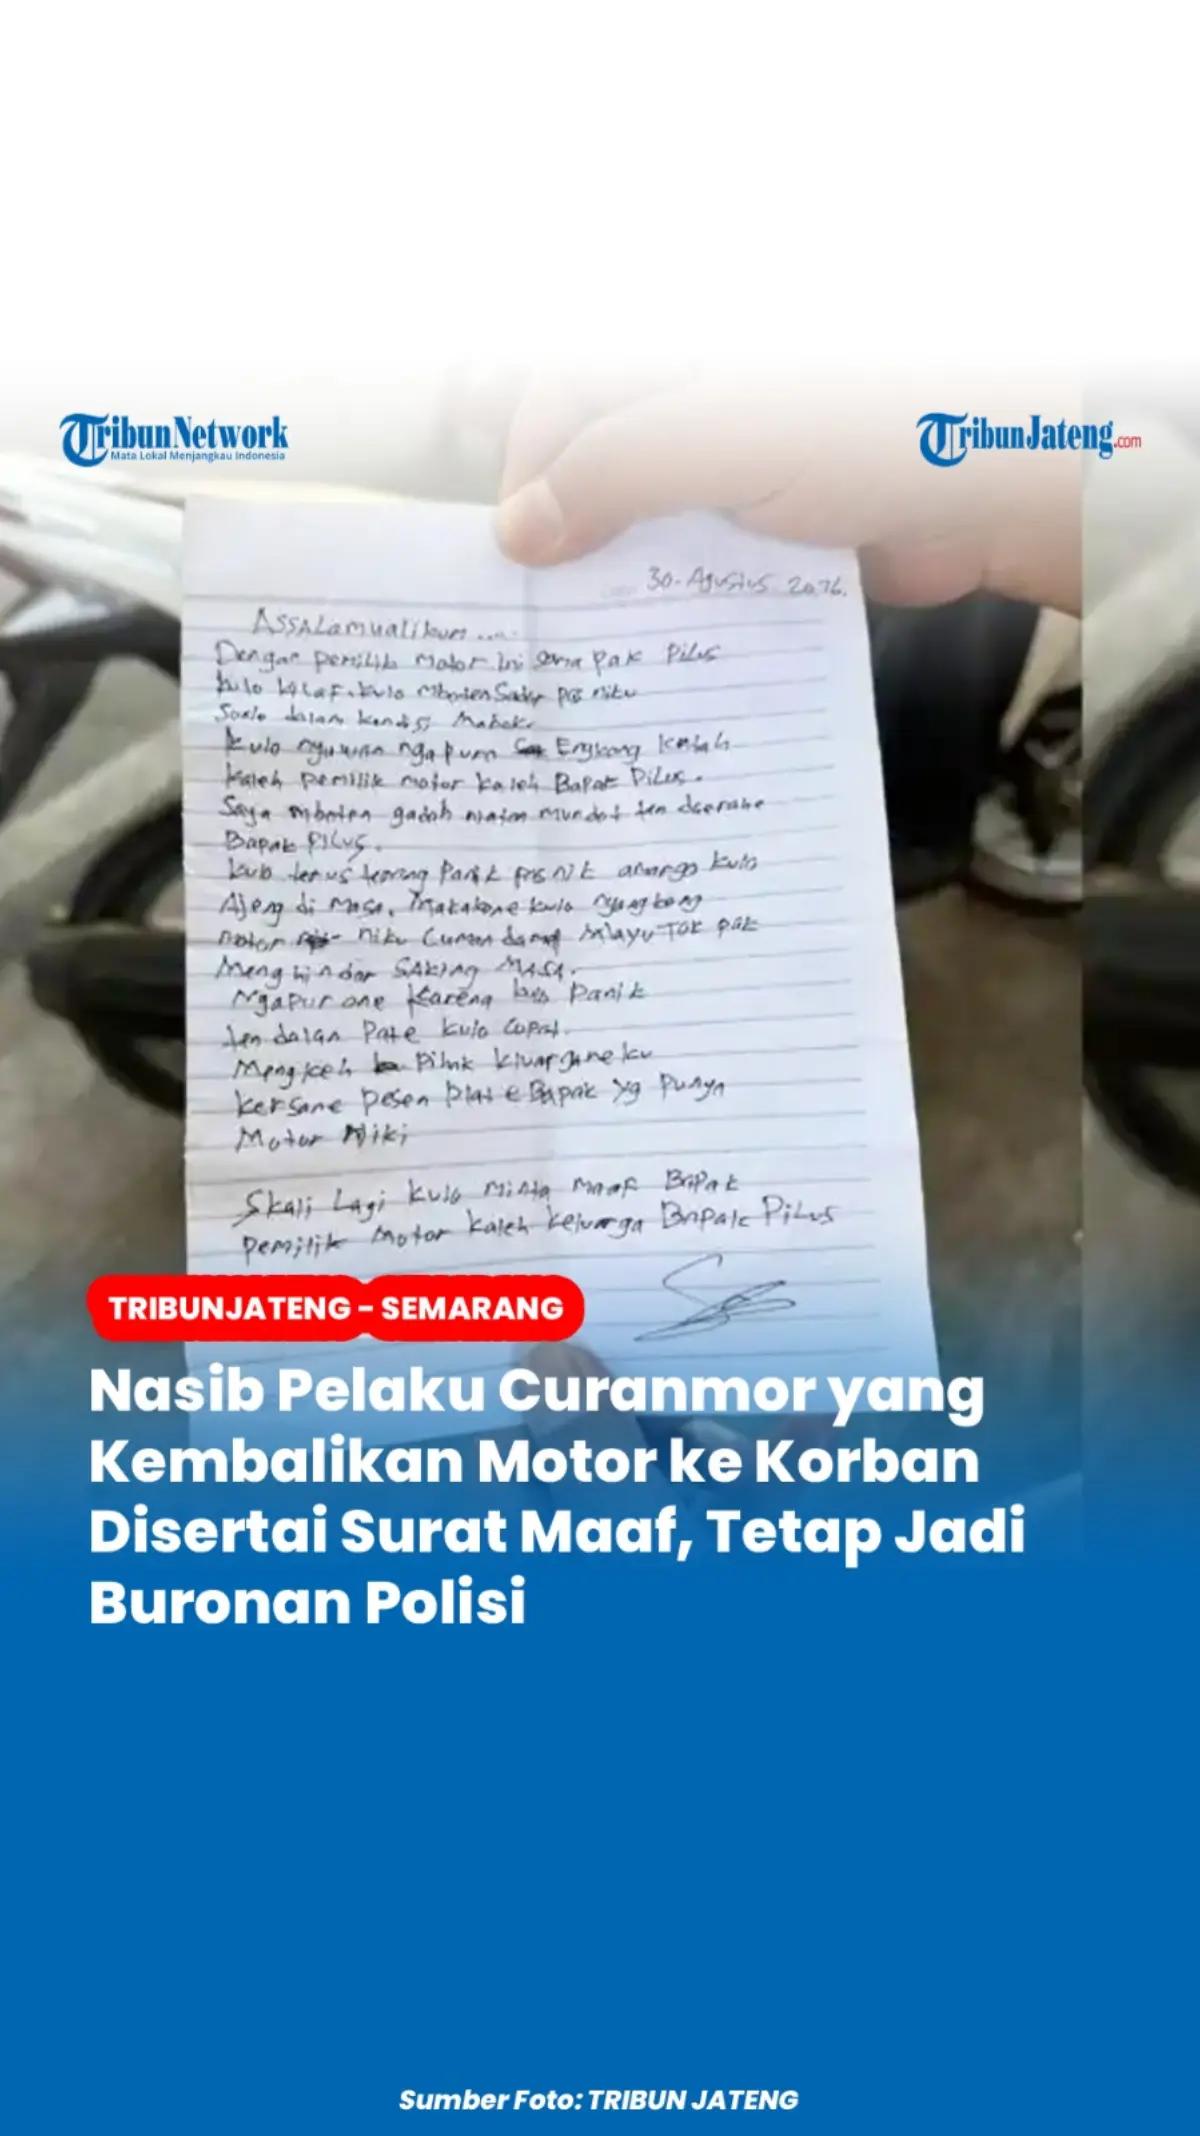 Tribun Network
Mata Lokal Menjangkau Indonesia
TribunJateng.com
30-Agustus 2076.
ASSALamualikum .....
Dengan pemilik motor ini sama Pak Pilus
kulo hilaf. kulo mboten Sadar pas niku
Soale dalam kondisi Maboke
kulo nyuwun ngapura kalah
kaleh pemilik motor kaleh Bapak Pilus.
Saya mboten gadah niatan mundot ten daerahe
Bapak PILUS.
kulo terus terang Panik pas nik amargo kulo
Ajeng di masa. Makakane kulo nyangkong
motor niku Cuman damel Mlayu Tok pak
Menghindar SAKING MASA.
Ngapurane Karena Panik
ten dalan Pate kulo Copot.
Mengkeh Pihak kluargane ku
kersane pesen Plate Bapak yg Punya
Motor Niki
Skali Lagi kulo minta maaf Bapak
pemilik Motor kaleh keluarga Bapak PiLus
TRIBUNJATENG - SEMARANG
Nasib Pelaku Curanmor yang
Kembalikan Motor ke Korban
Disertai Surat Maaf, Tetap Jadi
Buronan Polisi
Sumber Foto: TRIBUN JATENG